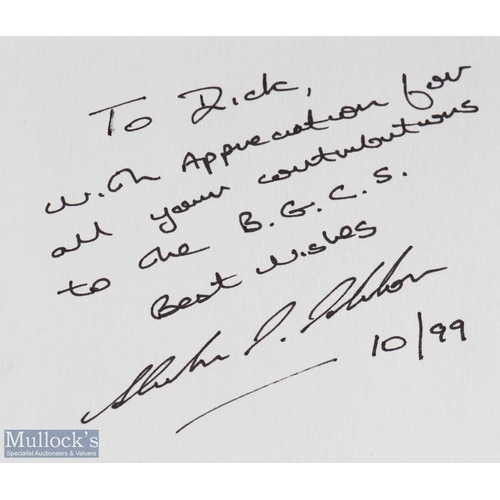 To Dick,
With Appreciation for
all your contributions
to the B.G.C.S.
Best Wishes
10/99
Mullock's
Specialist Auctioneers & Valuers